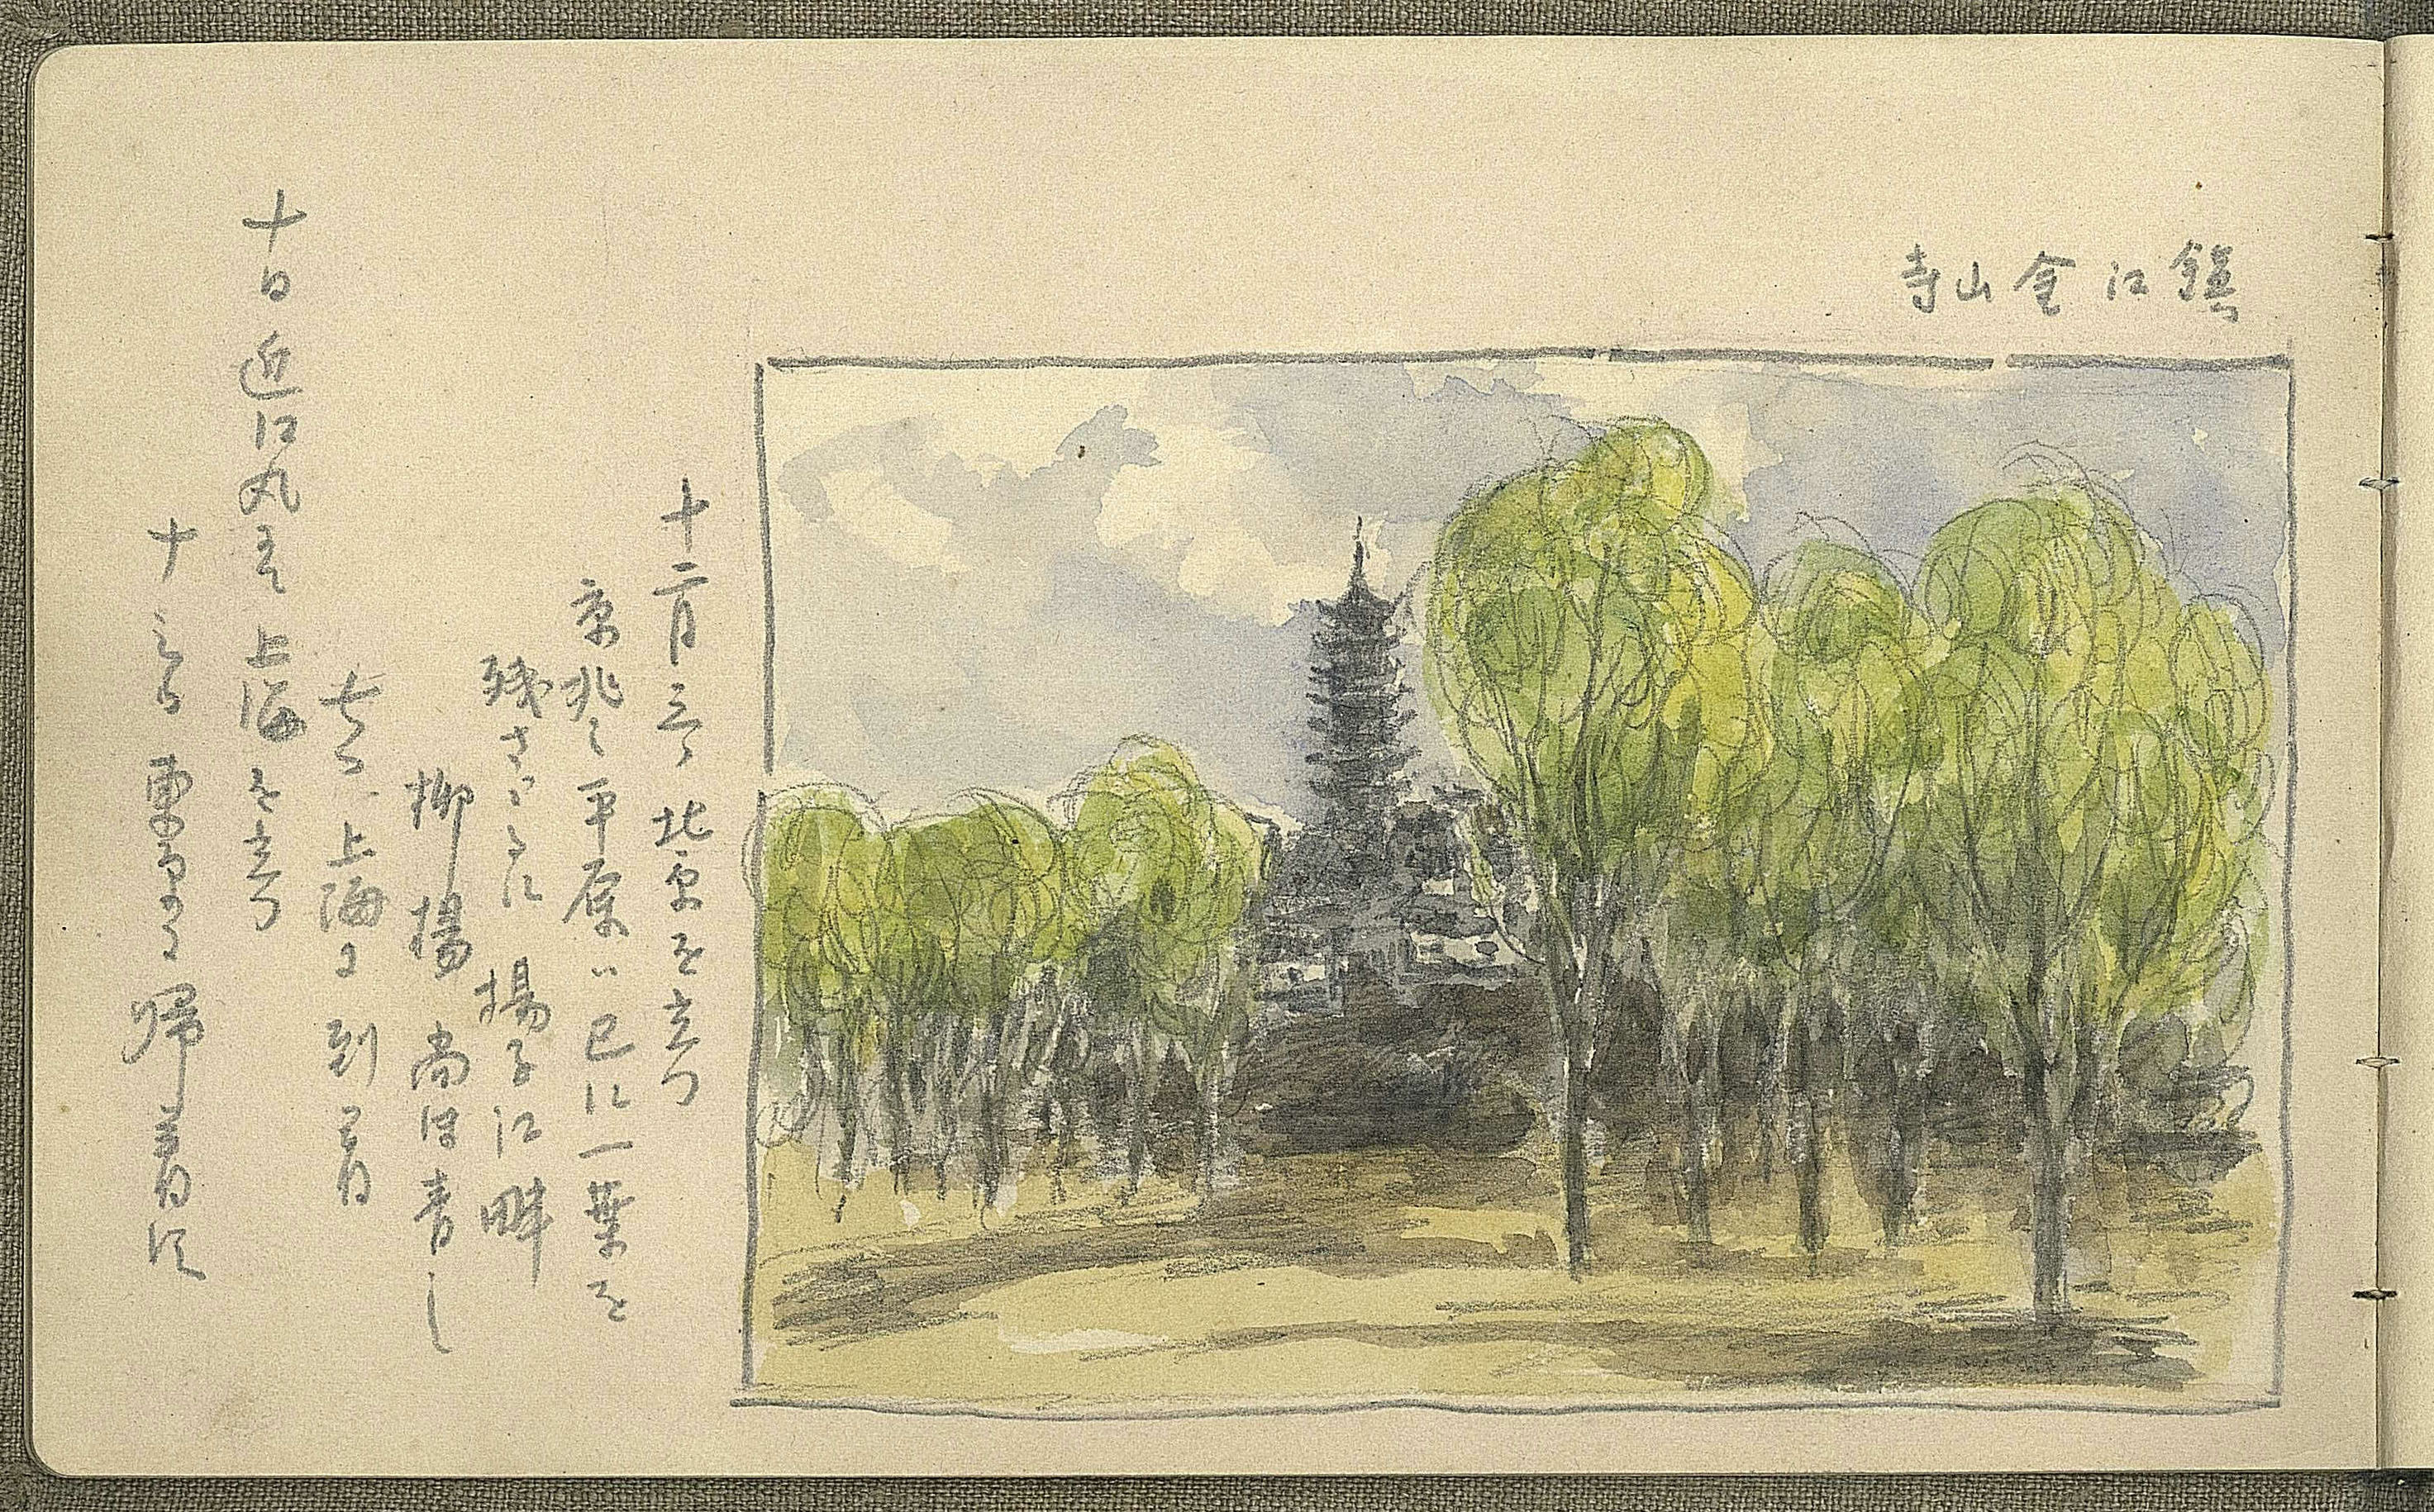 鎮江金山寺
十二月三日 北京を立つ
京兆之平原ハ已に一葉を
残さゞるに 揚子江畔
柳楊尚ほ青し
七日 上海に到着
十日近江丸にて上海を立つ
十三日 帰着